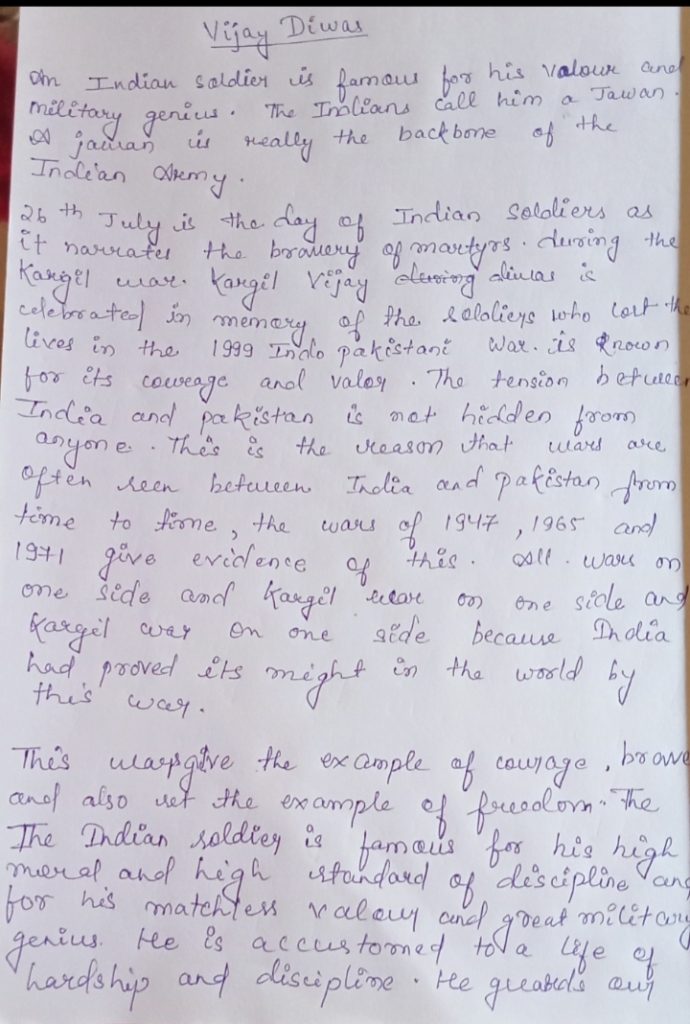 Vijay Diwas
An Indian soldier is famous for his valour and
military genius. The Indians call him a Jawan.
A jawan is really the backbone of the
Indian Army.
26 th July is the day of Indian Soldiers as
it narrates the bravery of martyrs. during the
Kargil war. Kargil Vijay during diwas is
celebrated in memory of the soldiers who lost the
lives in the 1999 Indo pakistani war. is known
for its courage and valor. The tension between
India and pakistan is not hidden from
anyone. This is the reason that wars are
often seen between India and pakistan from
time to time, the wars of 1947, 1965 and
1971 give evidence of this. All. wars on
one side and Kargil war on one side and
Kargil war on one side because India
had proved its might in the world by
this war.
This wars give the example of courage, brave
and also set the example of freedom. The
The Indian soldier is famous for his high
moral and high standard of discipline and
for his matchless valour and great military
genius. He is accustomed to a life of
hardship and discipline. He guards our